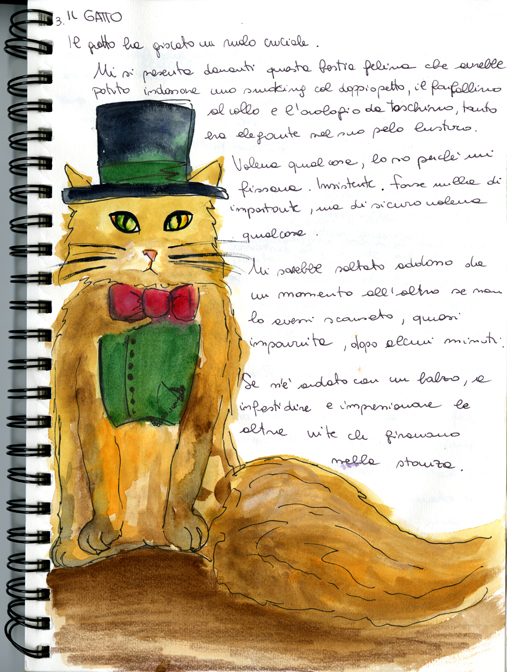 3. IL GATTO
Il gatto ha giocato un ruolo cruciale.
Mi si presenta davanti questa bestia felina che avrebbe
potuto indossare uno smoking col doppiopetto, il farfallino
al collo e l'orologio da taschino, tanto
era elegante nel suo pelo lustro.
Voleva qualcosa, lo so perché mi
fissava. Insistente. Forse nulla di
importante, ma di sicuro voleva
qualcosa.
Mi sarebbe saltato addosso da
un momento all'altro se non
lo avessi scansato, quasi
impaurita, dopo alcuni minuti.
Se n'è andato con un balzo, a
infastidire e impressionare le
altre vite che giravano
nella stanza.